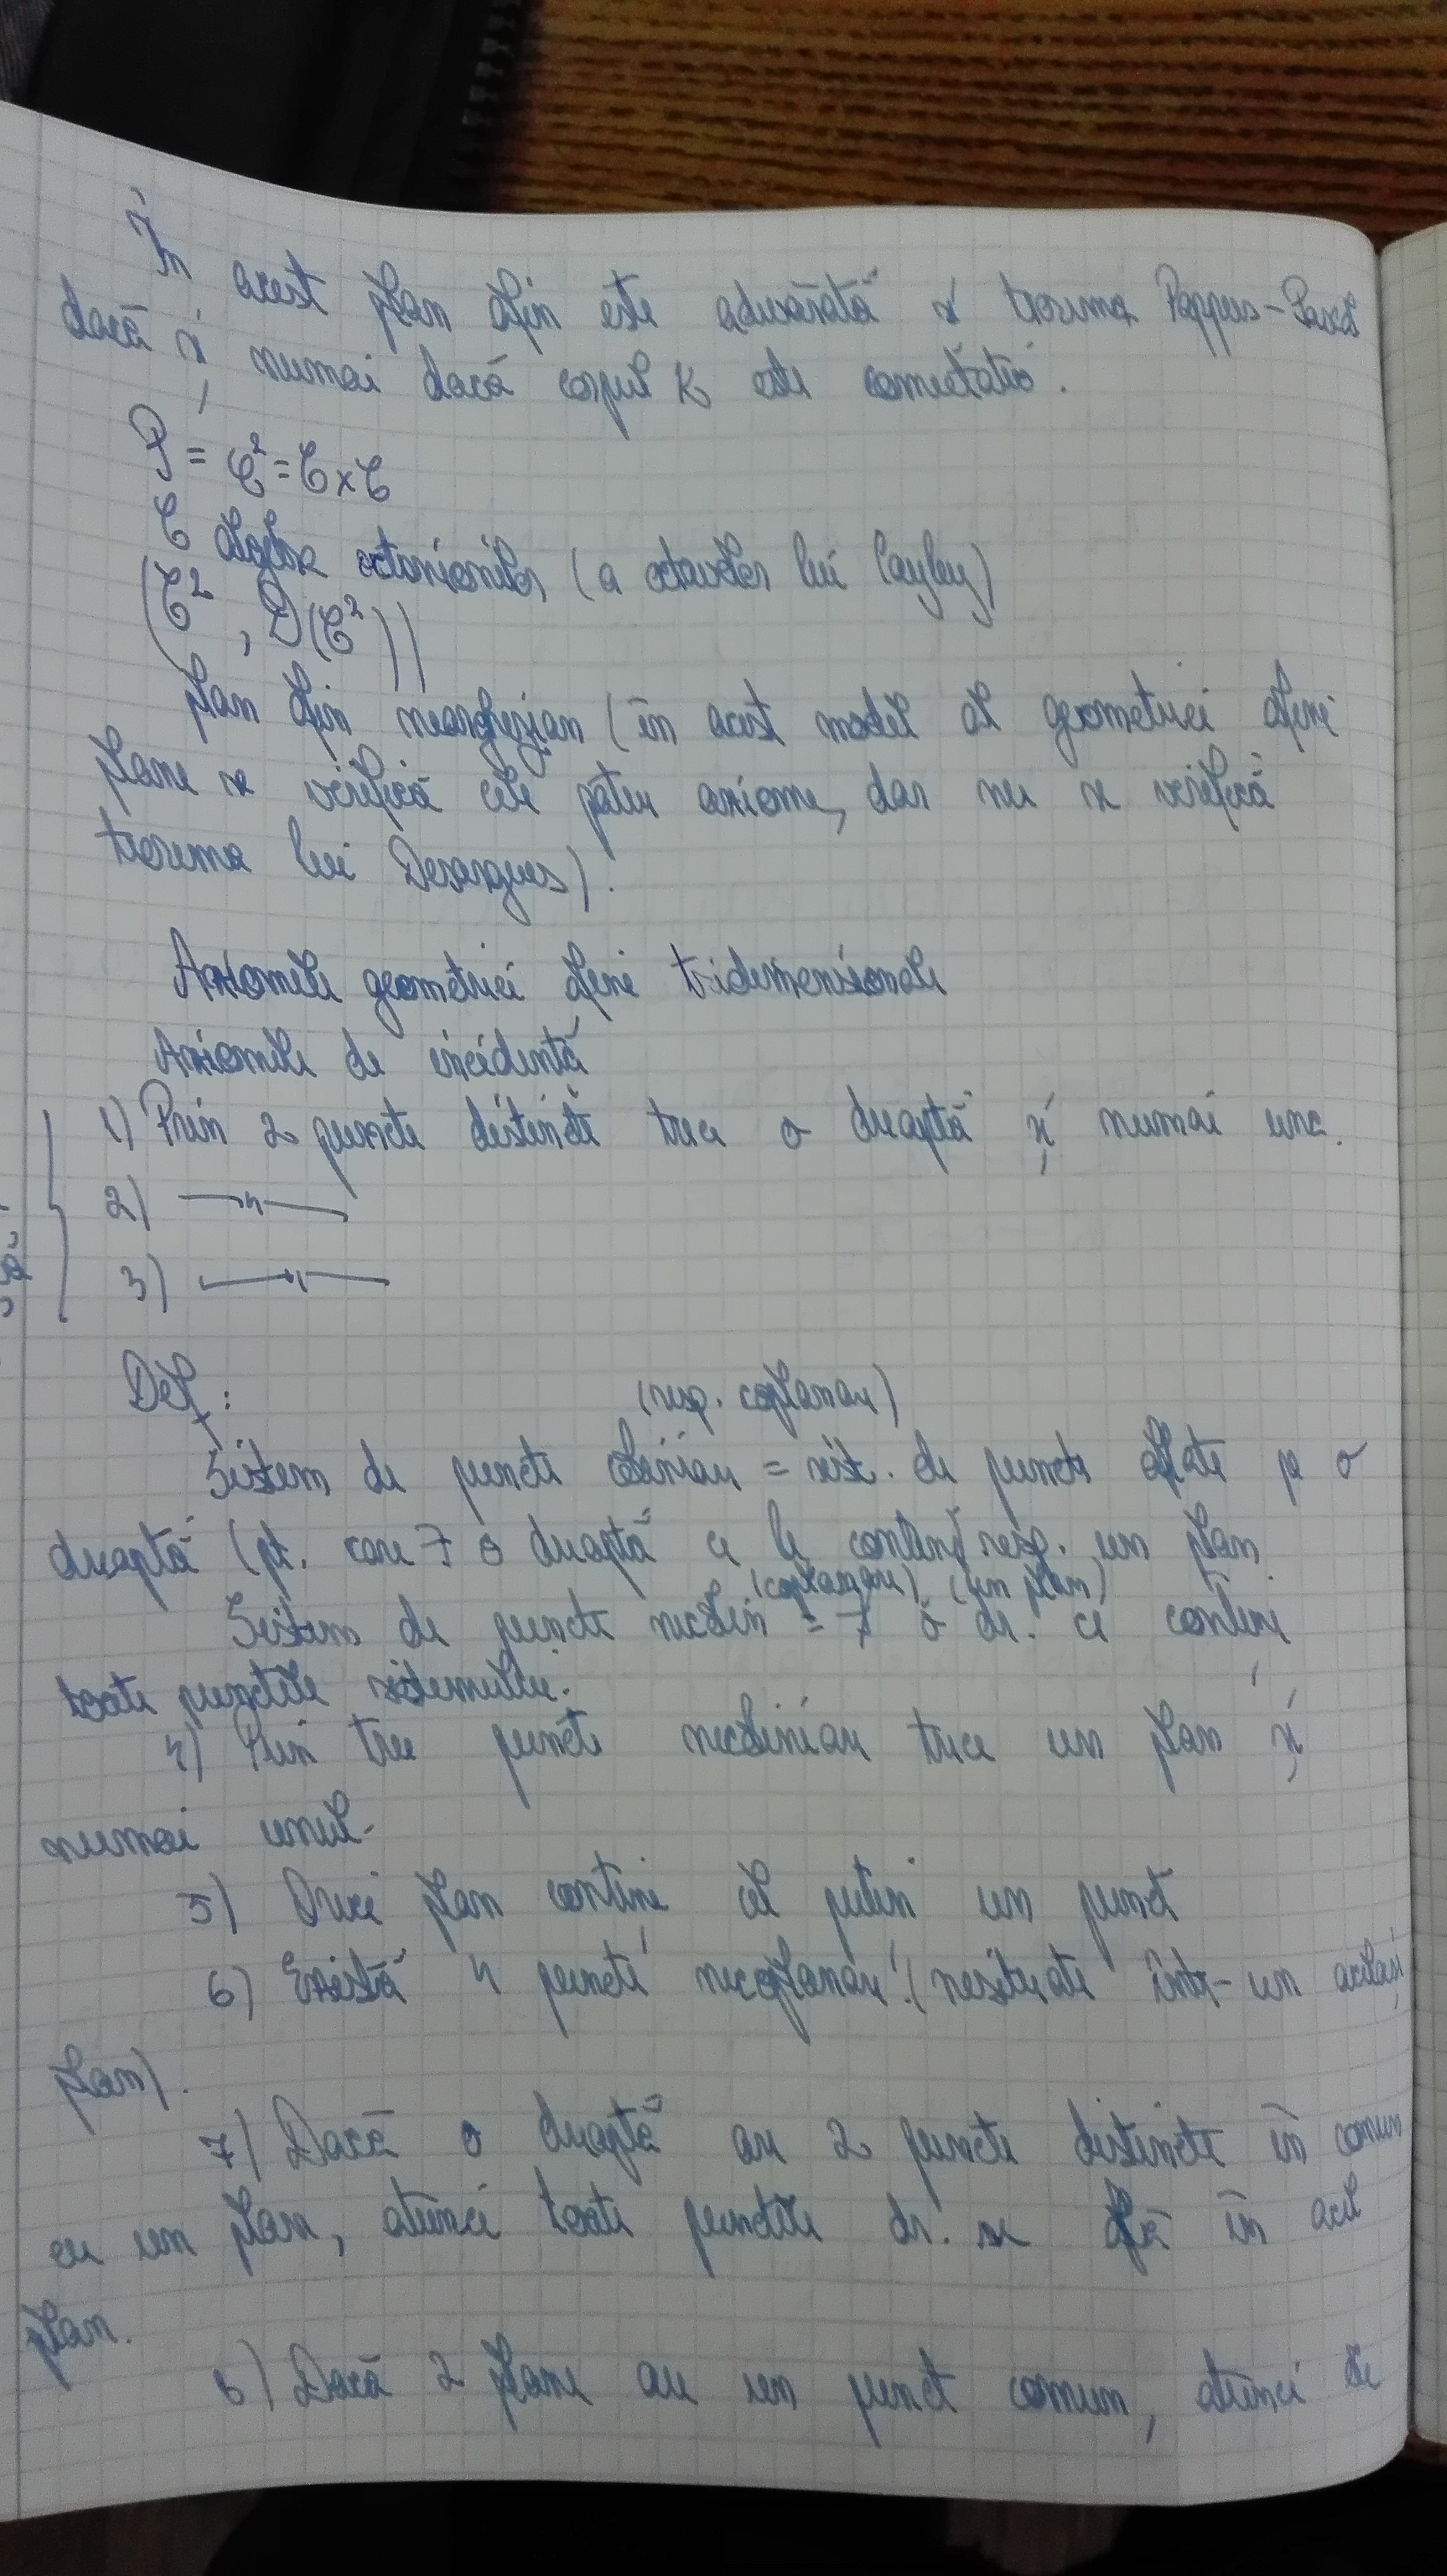 În acest plan afin este adevărată și teorema Pappus-Pascal
dacă și numai dacă corpul K este comutativ.
P = C² = C x C
C algebra octonionilor (a octavelor lui Cayley)
(C², D(C²))
plan afin nearghezian (în acest model al geometriei afine
plane se verifică cele patru axiome, dar nu se verifică
teorema lui Desargues).
Axiomele geometriei afine tridimensionale
Axiomele de incidență
1) Prin 2 puncte distincte trece o dreaptă și numai una.
2) —"—
3) —"—
Def:
(resp. coplanare)
Sistem de puncte coliniare = sist. de puncte aflate pe o
dreaptă (pt. care ∃ o dreaptă ce le conține) resp. un plan.
(coplanare) (un plan)
Sistem de puncte necolin = ∄ o dr. ce conține
toate punctele sistemului.
4) Prin trei puncte necoliniare trece un plan și
numai unul.
5) Orice plan conține cel puțin un punct
6) Există 4 puncte necoplanare (nesituate într-un același
plan).
7) Dacă o dreaptă are 2 puncte distincte în comun
cu un plan, atunci toate punctele dr. se află în acel
plan.
8) Dacă 2 plane au un punct comun, atunci ele